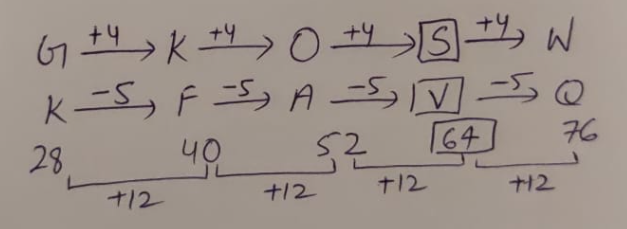 G +4 K +4 O +4 S +4 W
K -5 F -5 A -5 V -5 Q
28 40 52 64 76
+12 +12 +12 +12